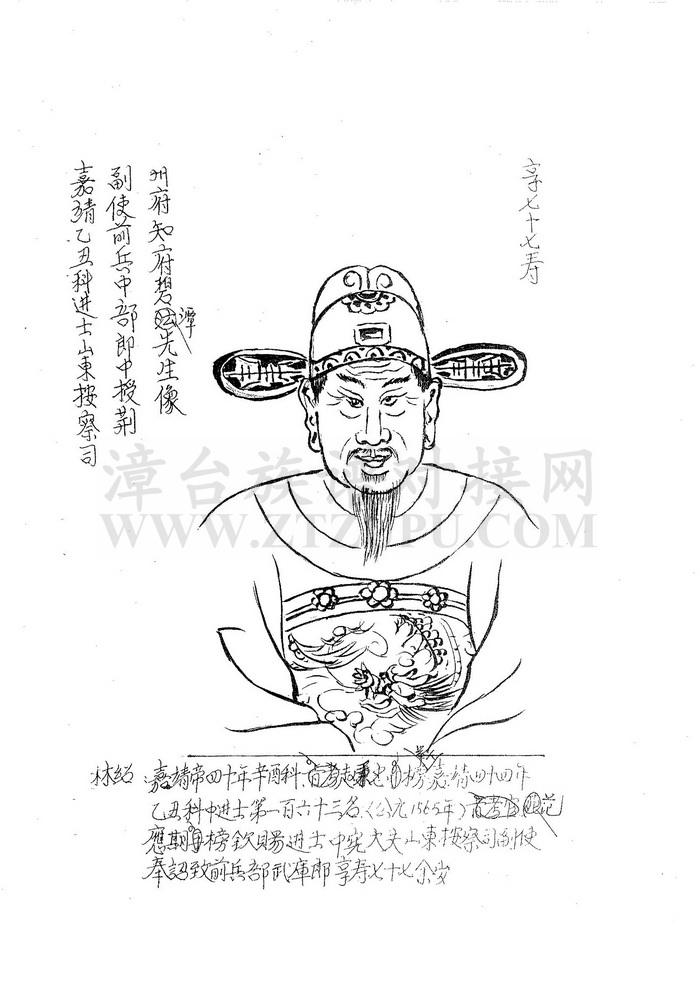 享七十七寿
嘉靖乙丑科进士山東按察司
副使前兵中部郎中授荆
州府知府碧潭先生像
漳台族谱对接网
WWW.ZTZUPU.COM
林绍 嘉靖帝四十年辛酉科 榜嘉靖四十四年
乙丑科中进士第一百六十三名(公元1565年) 范
應期 榜欽賜进士中宪大夫山東按察司副使
奉 致前兵部武庫郎享寿七十七余岁